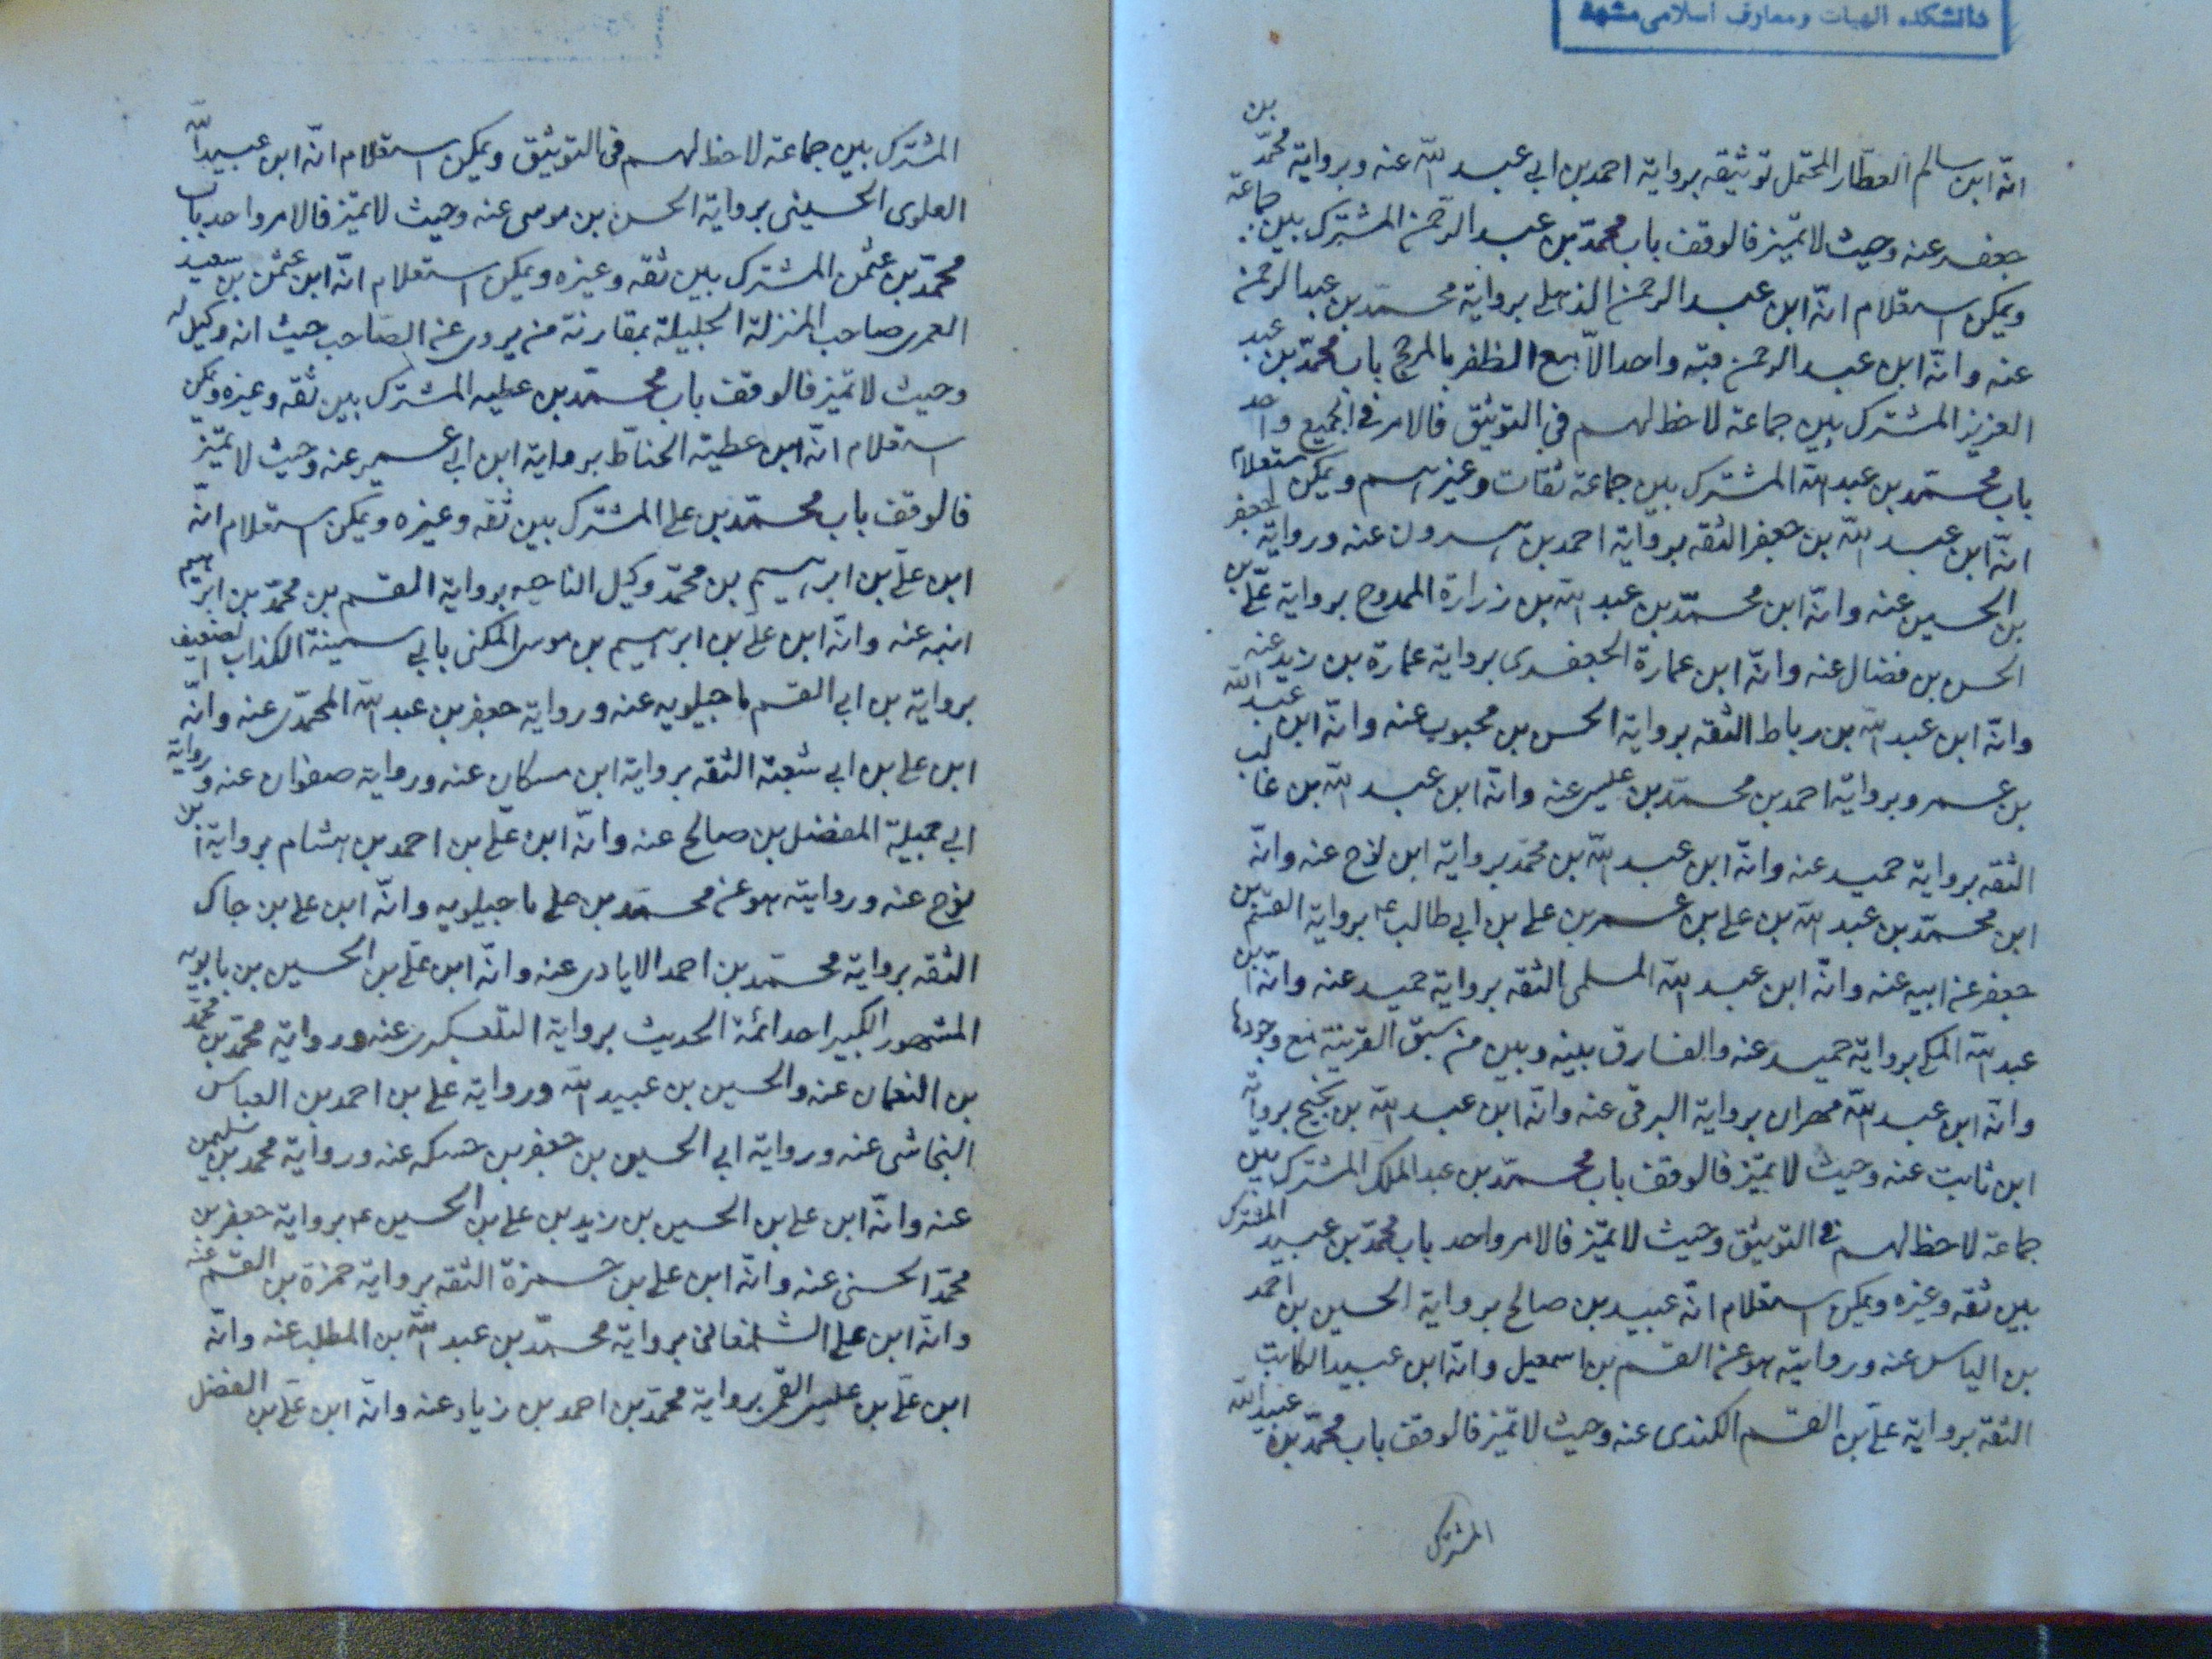 دانشکده الهیات و معارف اسلامی مشهد
انّه ابن سالم العطّار المحتمل توثيقه برواية احمد بن ابي عبد الله عنه وبرواية محمّد بن
جعفر عنه وحيث لا تميّز فالوقف باب محمّد بن عبد الرّحمن المشترك بين جماعة
ويمكن استعلام انّه ابن عبد الرحمن الذهلي برواية محمّد بن عبد الرحمن
عنه وانّه ابن عبد الرحمن فته واحد الّا مع الظفر بالمرجح باب محمّد بن عبد
العزيز المشترك بين جماعة لا حظ لهم في التوثيق فالامر في الجميع واحد
باب محمّد بن عبد الله المشترك بين جماعة ثقات وغيرهم ويمكن استعلام
انّه ابن عبد الله بن جعفر الثقه برواية احمد بن عنه ورواية جعفر
بن الحسين عنه وانّه ابن محمّد بن عبد الله بن زرارة الممدوح برواية علّي بن
الحسن بن فضال عنه وانّه ابن عمارة الجعفرى برواية عمارة بن زيد عنه
وانّه ابن عبد الله بن رباط الثقه برواية الحسن بن محبوب عنه وانّه ابن عبد الله
بن عمرو برواية احمد بن محمّد بن عيسى عنه وانّه ابن عبد الله بن غالب
الثقه برواية حميد عنه وانّه ابن عبد الله بن محمّد برواية ابن نوح عنه وانّه
ابن محمّد بن عبد الله بن علي بن عمر بن علي بن ابي طالب ع برواية القسم بن
جعفر عن ابيه عنه وانّه ابن عبد الله المسلى الثقه برواية حميد عنه وانّه ابن
عبد الله المكى برواية حميد عنه والفارق بينه وبين من سبق القرينة مع وجودها
وانّه ابن عبد الله مهران برواية البرقى عنه وانّه ابن عبد الله بن نجيح برواية
ابن ثابت عنه وحيث لا تميّز فالوقف باب محمّد بن عبد الملك المشترك بين
جماعة لا حظ لهم في التوثيق وحيث لا تميّز فالامر واحد باب محمّد بن عبيد المشترك
بين ثقه وغيره ويمكن استعلام انّه عبيد بن صالح برواية الحسين بن احمد
بن الياس عنه وروايته هو عن القسم بن اسمعيل وانّه ابن عبيد الكاتب
الثقه برواية علّي بن القسم الكندى عنه وحيث لا تميّز فالوقف باب محمّد بن عبيد الله
المشترك
المشترك بين جماعة لا حظ لهم في التوثيق ويمكن استعلام انّه ابن عبيد الله
العلوى الحسينى برواية الحسن بن موسى عنه وحيث لا تميّز فالامر واحد باب
محمّد بن عثمن المشترك بين ثقه وغيره ويمكن استعلام انّه ابن عثمن بن سعيد
العمرى صاحب المنزلة الجليلة بمقارنة من يروى عن الصّاحب حيث انه وكيل له
وحيث لا تميّز فالوقف باب محمّد بن عطيه المشترك بين ثقه وغيره ويمكن
استعلام انّه ابن عطية الحنّاط برواية ابن ابي عمير عنه وحيث لا تميّز
فالوقف باب محمّد بن علي المشترك بين ثقه وغيره ويمكن استعلام انّه
ابن علّي بن ابرهيم بن محمّد وكيل الناحيه برواية القسم بن محمّد بن ابرهيم
ابنه عنه وانّه ابن علي بن ابرهيم بن موسى المكنى بابي سمينة الكذاب الضعيف
برواية بن ابي القسم ماجيلويه عنه ورواية جعفر بن عبد الله المحمّدى عنه وانّه
ابن علي بن ابي شعبة الثقه برواية ابن مسكان عنه ورواية صفوان عنه ورواية
ابي جميلة المفضل بن صالح عنه وانّه ابن علّي بن احمد بن هشام برواية ابن
نوح عنه وروايته هو عن محمّد بن علي ماجيلويه وانّه ابن علي بن جاك
الثقه برواية محمّد بن احمد الايادى عنه وانّه ابن علّي بن الحسين بن بابويه
المشهور الكبير احد ائمّة الحديث برواية التلعكبرى عنه ورواية محمّد بن محمّد
بن النعمان عنه والحسين بن عبيد الله ورواية علي بن احمد بن العباس
النجاشى عنه ورواية ابي الحسين بن جعفر بن حسكه عنه ورواية محمد بن سليمن
عنه وانّه ابن علي بن الحسين بن زيد بن علي بن الحسين ع برواية جعفر بن
محمّد الحسنى عنه وانّه ابن علي بن حمزة الثقه برواية حمزة بن القسم عنه
وانّه ابن علي الشلمغانى برواية محمّد بن عبد الله بن المطلب عنه وانّه
ابن علّي بن عيسى القمى برواية محمّد بن احمد بن زياد عنه وانّه ابن علّي بن الفضل